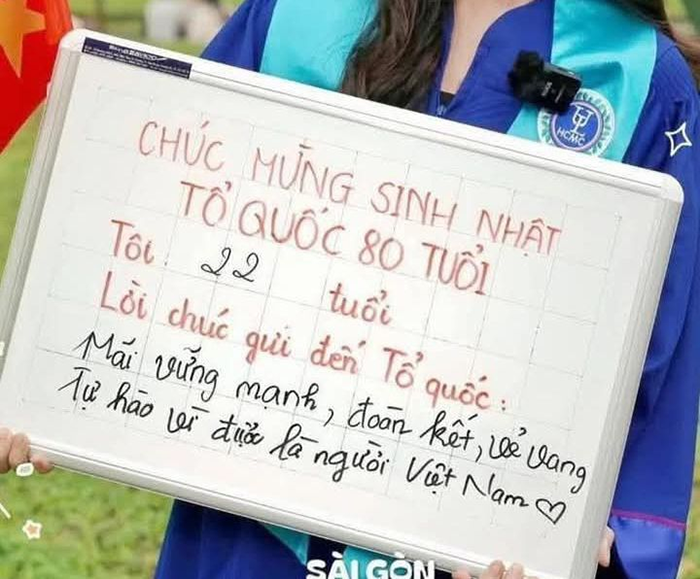 CHÚC MỪNG SINH NHẬT
TỔ QUỐC 80 TUỔI
Tôi 22 tuổi
Lời chúc gửi đến Tổ quốc:
Mãi vững mạnh, đoàn kết, vẻ vang
Tự hào vì được là người Việt Nam ♡
HCMC
SÀI GÒN